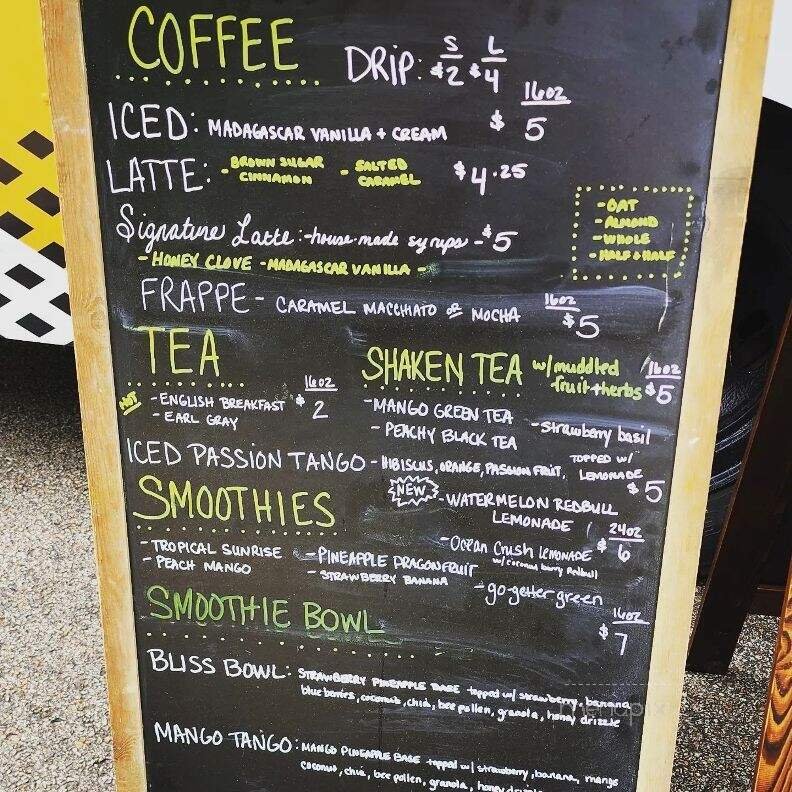 COFFEE
DRIP: S $2 L $4
16oz
ICED: MADAGASCAR VANILLA + CREAM $5
LATTE: - BROWN SUGAR CINNAMON - SALTED CARAMEL $4.25
- OAT
- ALMOND
- WHOLE
- HALF + HALF
Signature Latte: - house-made syrups - $5
- HONEY CLOVE - MADAGASCAR VANILLA -
FRAPPE - CARAMEL MACCHIATO or MOCHA 16oz $5
TEA
16oz
HOT
- ENGLISH BREAKFAST $2
- EARL GRAY
SHAKEN TEA w/muddled fruit + herbs 16oz $5
- MANGO GREEN TEA
- PEACHY BLACK TEA
- strawberry basil
ICED PASSION TANGO - HIBISCUS, ORANGE, PASSION FRUIT, TOPPED W/ LEMONADE $5
NEW
- WATERMELON REDBULL LEMONADE
- Ocean Crush LEMONADE 24oz $6
w/coconut berry Redbull
SMOOTHIES
- TROPICAL SUNRISE
- PEACH MANGO
- PINEAPPLE DRAGONFRUIT
- STRAWBERRY BANANA
- go-getter green
16oz
$7
SMOOTHIE BOWL
BLISS BOWL: STRAWBERRY PINEAPPLE BASE topped w/ strawberry, banana,
blueberries, coconut, chia, bee pollen, granola, honey drizzle
MANGO TANGO: MANGO PINEAPPLE BASE topped w/ strawberry, banana, mango
coconut, chia, bee pollen, granola, honey drizzle